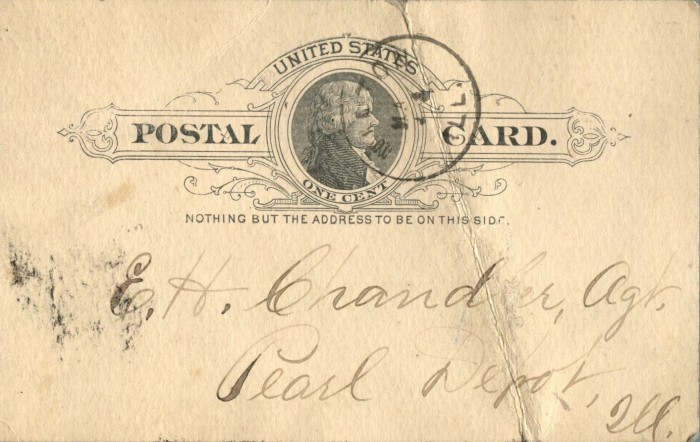 UNITED STATES
POSTAL CARD.
ONE CENT
NOTHING BUT THE ADDRESS TO BE ON THIS SIDE.
ILL.
E. H. Chandler, Agt.
Pearl Depot,
Ill.